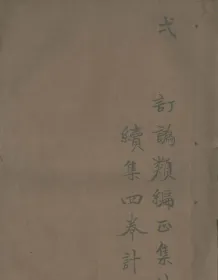 弍
訂譌類編正集
續集四奉計